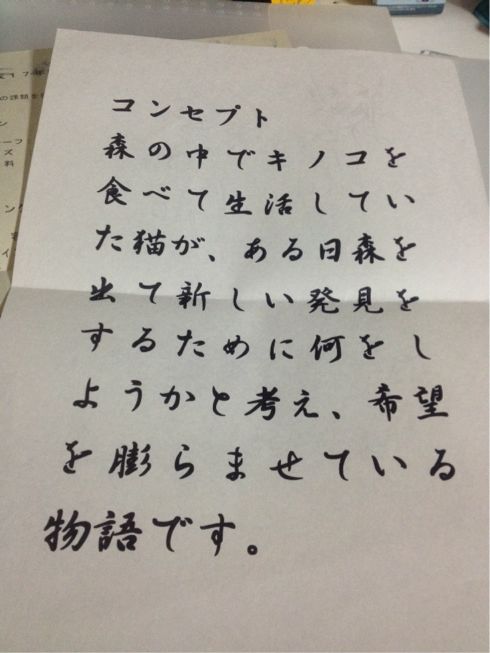 コンセプト
森の中でキノコを
食べて生活してい
た猫が、ある日森を
出て新しい発見を
するために何をし
ようかと考え、希望
を膨らませている
物語です。